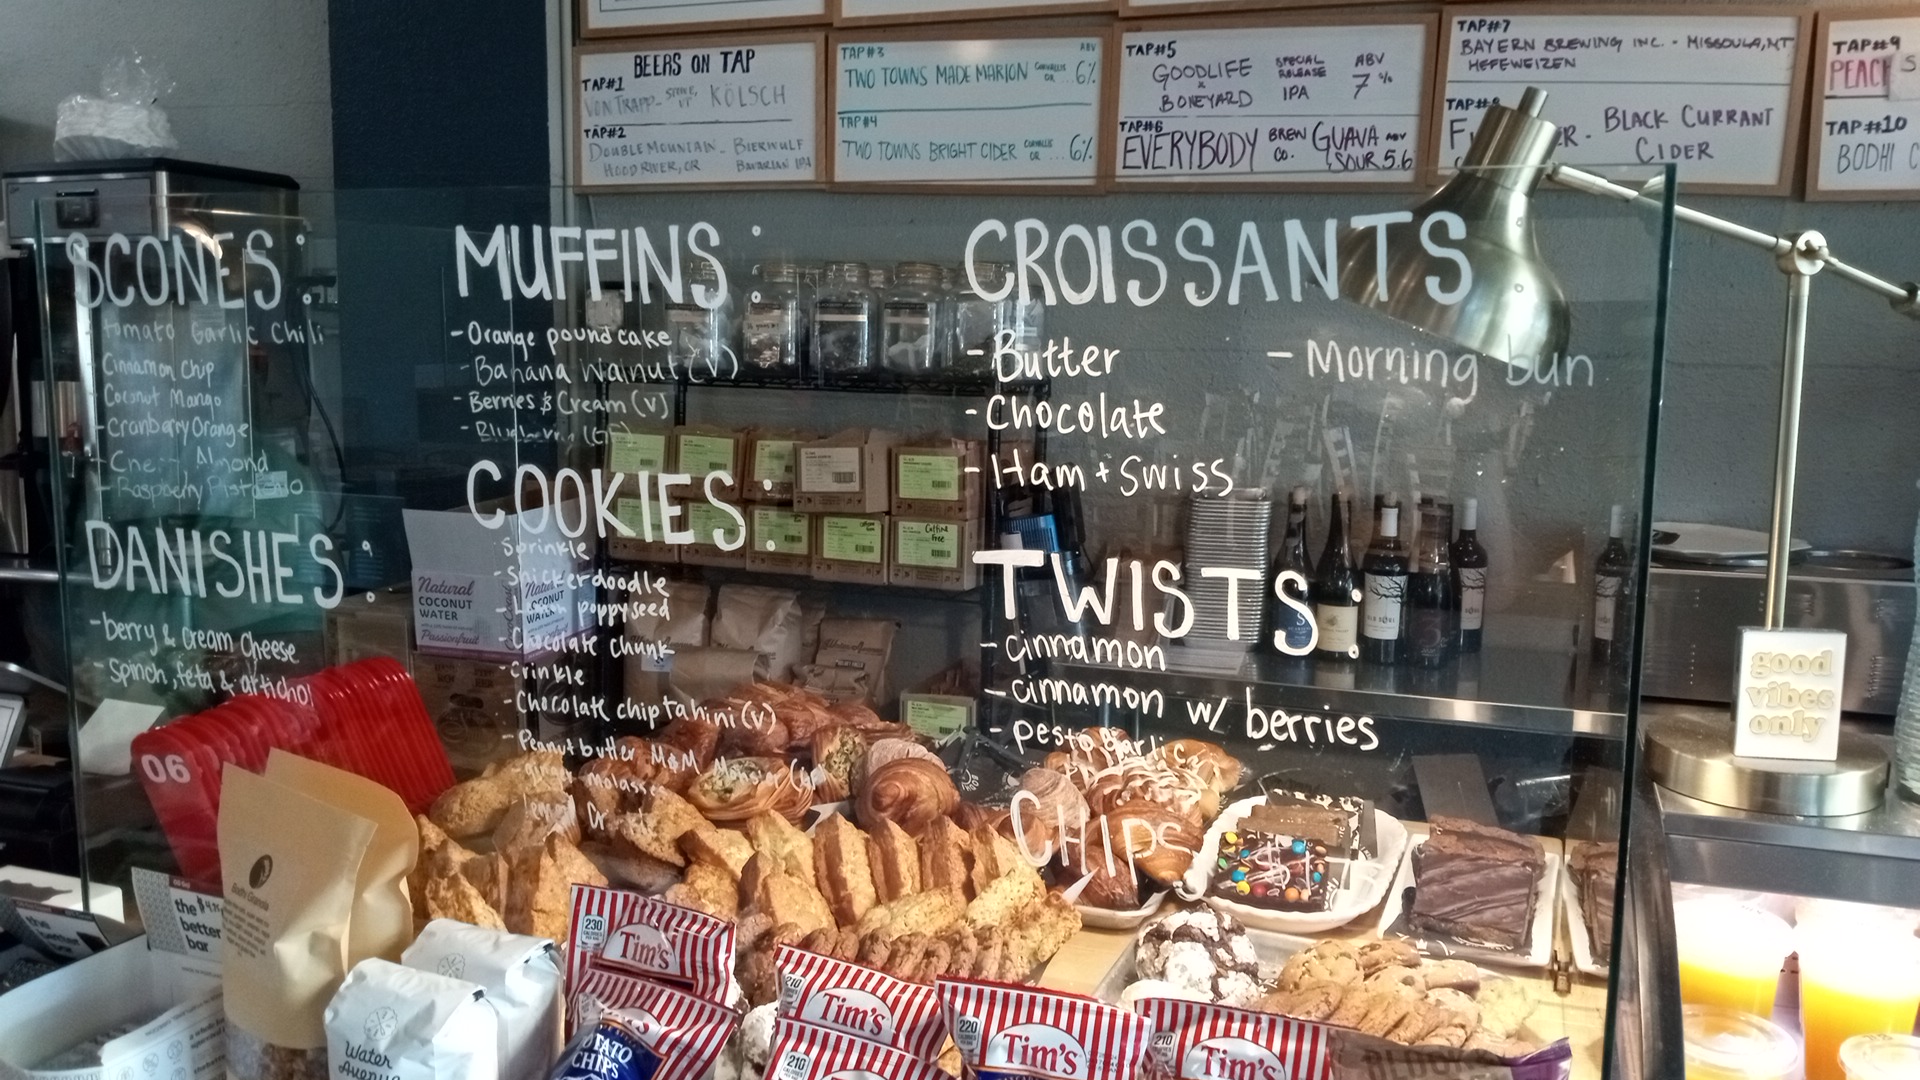 BEERS ON TAP
TAP#1
VON TRAPP - STOWE, VT KÖLSCH
TAP#2
DOUBLE MOUNTAIN - BIERWULF
HOOD RIVER, OR BAVARIAN IPA
TAP#3 ABV
TWO TOWNS MADE MARION CORVALLIS OR ... 6%
TAP#4
TWO TOWNS BRIGHT CIDER CORVALLIS OR ... 6%
TAP#5
GOODLIFE x BONEYARD SPECIAL RELEASE IPA ABV 7%
TAP#6
EVERYBODY BREW CO. GUAVA SOUR ABV 5.6
TAP#7
BAYERN BREWING INC. - MISSOULA, MT
HEFEWEIZEN
TAP#8
BLACK CURRANT
CIDER
TAP#9
PEACH
TAP#10
BODHI
SCONES:
tomato Garlic Chili
- Cinnamon Chip
- Coconut Mango
- Cranberry Orange
Almond
- Raspberry
DANISHES:
- berry & cream cheese
- Spinch, feta & artichol
MUFFINS:
- Orange poundcake
- Banana Walnut (V)
- Berries & Cream (V)
- Blueberry (GF)
COOKIES:
Sprinkle
- Snickerdoodle
poppyseed
- Chocolate chunk
- Crinkle
- Chocolate chip tahini (V)
- Peanut butter M&M Monster
- ginger molasses
lemon
CROISSANTS
- Butter
- Chocolate
- Ham + Swiss
- Morning bun
TWISTS:
- cinnamon
- cinnamon w/ berries
- pesto garlic
CHIPS
Natural
COCONUT
WATER
Passionfruit
Caffine
Free
good
vibes
only
06
the
better
bar
$4.75
Bodhi Granola
Water
Avenue
230
CALORIES
Tim's
POTATO
CHIPS
210
Tim's
210
220
Tim's
210
Tim's